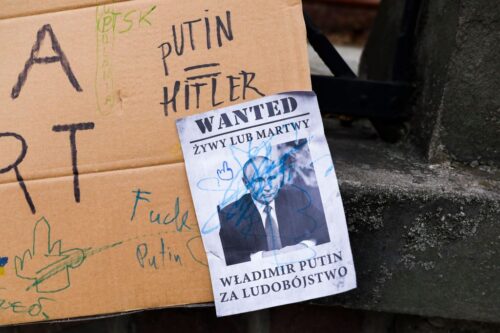 TSK
PUTIN
=
HITLER
A
RT
Fuck
Putin
WANTED
ŻYWY LUB MARTWY
WŁADIMIR PUTIN
ZA LUDOBÓJSTWO